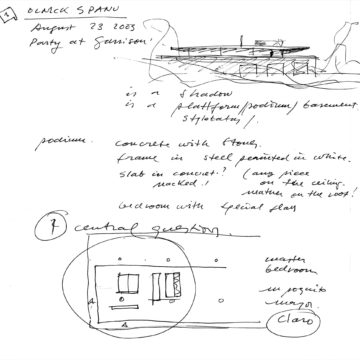 1
OLNICK SPANU
August 23 2003
Party at Garrison!
is a shadow
is a platform/podium/basement
stylobates/.
podium. concrete with stones.
frame in steel painted in white.
slab in concret.? (any piece
naked! on the ceiling.
on the roof!
bedroom with special
? central question.
master
bedroom
Claro